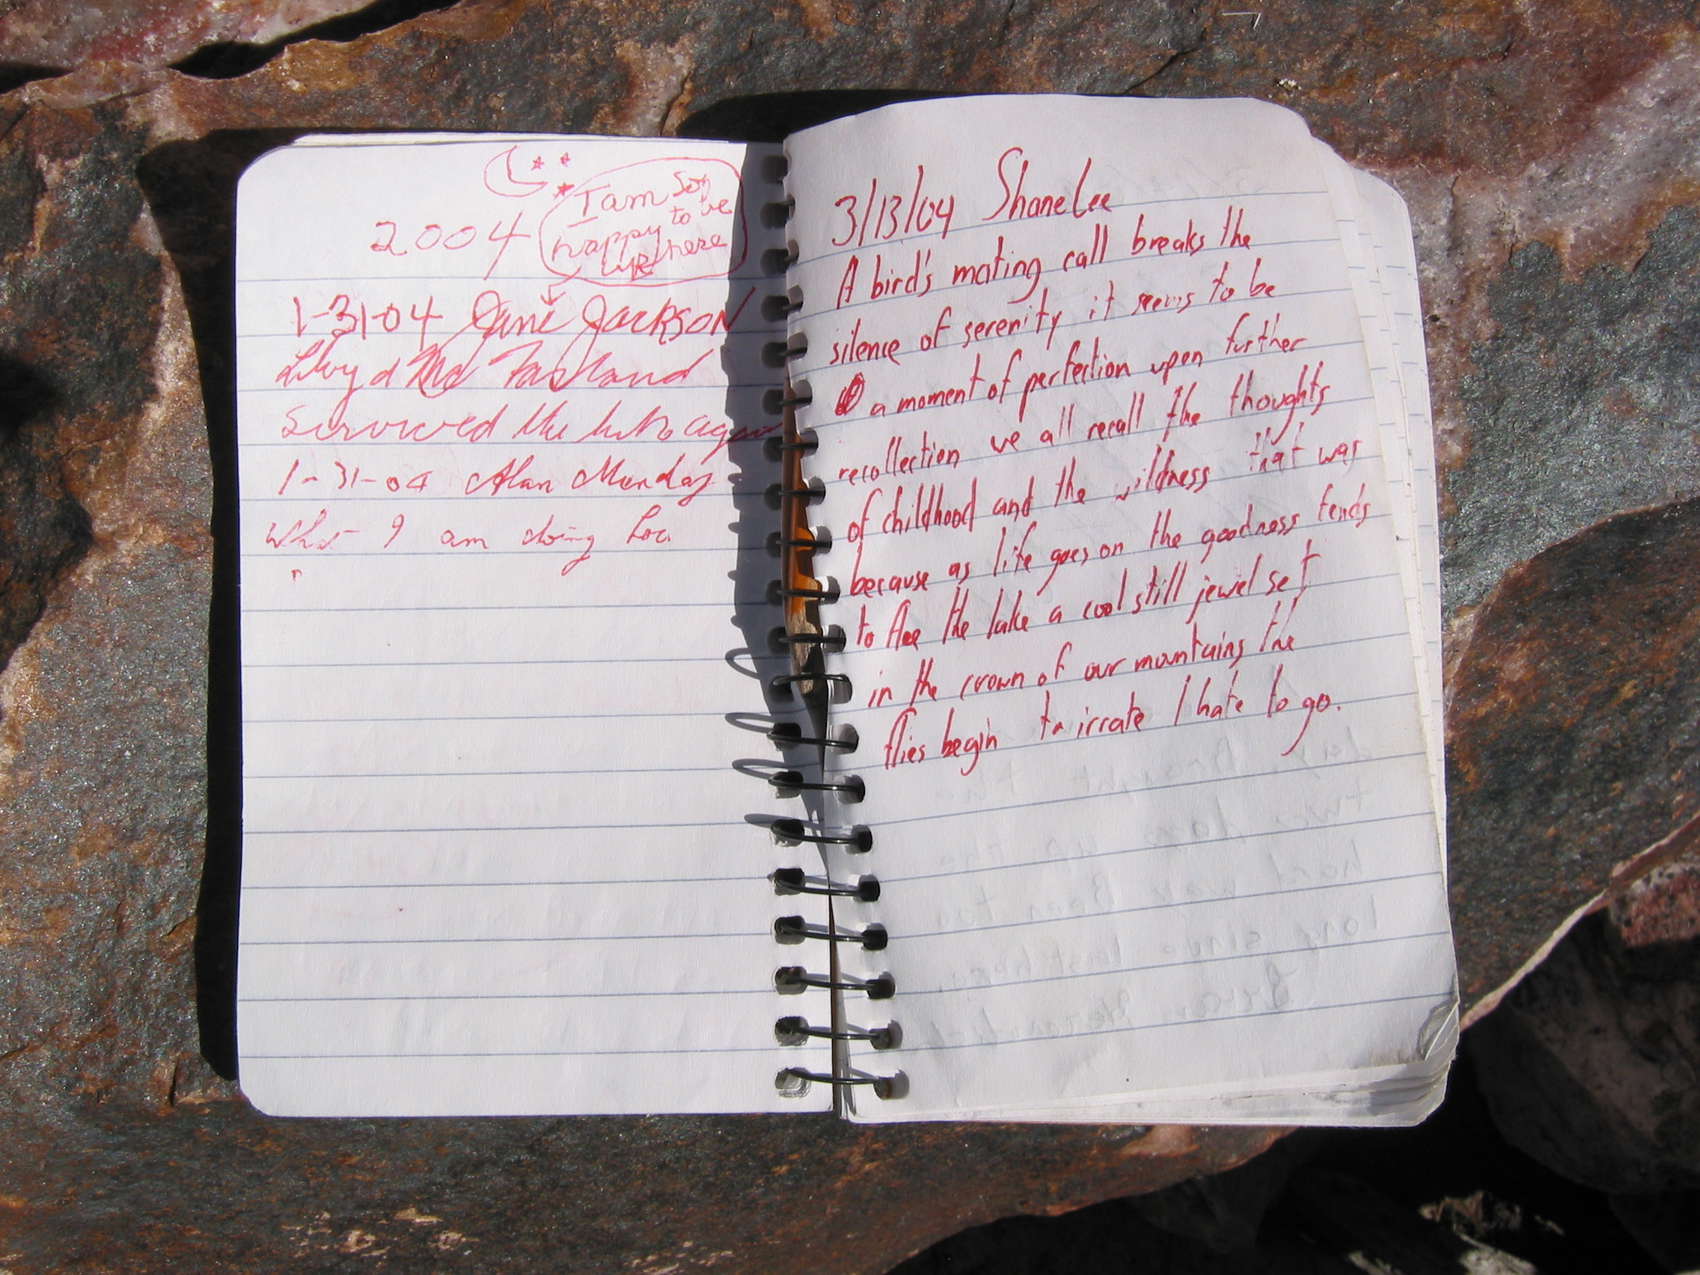 I am so
to be
happy here
2004
1-31-04 Jane Jackson
Lloyd Mc Farland
Survived the hike again
1-31-04 Alan Munday
What I am doing
3/13/04 ShaneLee
A bird's mating call breaks the
silence of serenity it seems to be
a moment of perfection upon further
recollection we all recall the thoughts
of childhood and the wildness that was
because as life goes on the goodness tends
to flee the lake a cool still jewel set
in the crown of our mountains the
flies begin to irrate I hate to go.